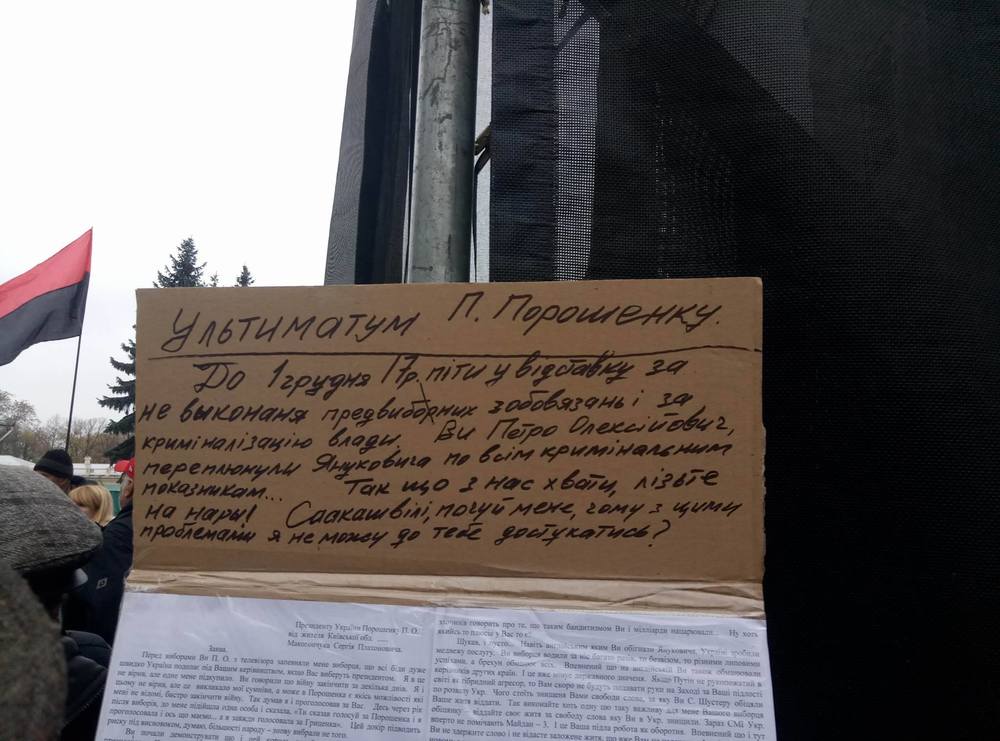 Ультиматум П. Порошенку.
До 1 грудня 17р. піти у відставку за
не выконаня предвиборних зобовязань і за
криміналізацію влади. Ви Петро Олексійович,
переплюнули Януковича по всім кримінальним
показникам... Так що з нас хвати, лізьте
на нары! Саакашвілі, почуй мене, чому з цими
проблемами я не можу до тебе достукатись?
Президенту України Порошенку П. О.
від жителя Київської обл.
Сергія Платоновича.
Заява.
Перед виборами Ви П. О. з телевізора запевняли мене виборця, що всі біди дуже
швидко Україна подолає під Вашим керівництвом, якщо Вас виберуть президентом. Я в це
не вірив, але одне мені підкупило. Ви говорили що війну закінчите за декілька днів. Я і
цьому не вірив, але це викликало мої сумніви, а може в Порошенка є якісь можливості які
мені не відомі, быстро закінчити війну. Так думав я і проголосував за Вас. Десь через рік
після виборів, до мене підійшла одна особа і сказала, «Ти сказав голосуй за Порошенка і я
проголосувала і ось що маємо... а я завжди голосувала за Гриценка». Цей докір підводить
риску під висновоком, думаю, більшості народу – знову вибрали не того.
Ви почали демонструвати що і
злочинів говорить про те, що таким бандитизмом Ви і мілліарди нацарювали... Ну хоть
якийсь то плюсы у Вас то є?
Шукав, і пусто... Навіть английським яким Ви обігнали Януковича, Україні зробили
медвежу послугу. Ви виборця водили за ніс багато разів, то безвізом, то різними липовими
успіхами, а брехун обманює всіх. Впевнений що на англійській Ви також обманювали
керівників других країн. І це вже мінус державного значення. Якщо Путін не рукопожатий в
світі як гібридний агресор, то Вам скоро не будуть подавати руки на Заході за Ваші підлості
по розвалу Укр. Чого стоїть знищена Вами свобода слова, за яку Ви С. Шустеру обіцяли
Ваше життя віддати. Так виконайте хоть одну таку важливу для мене Вашого виборця
обіцянку – віддайте своє життя за свободу слова яку Ви в Укр. знищили. Зараз СМі Укр.
вперто не помічають Майдан – 3. І це Ваша підла робота як оборотня. Впевнений що і тут
Ви не здержите слово і не відасте заложене життя, що вже Вам